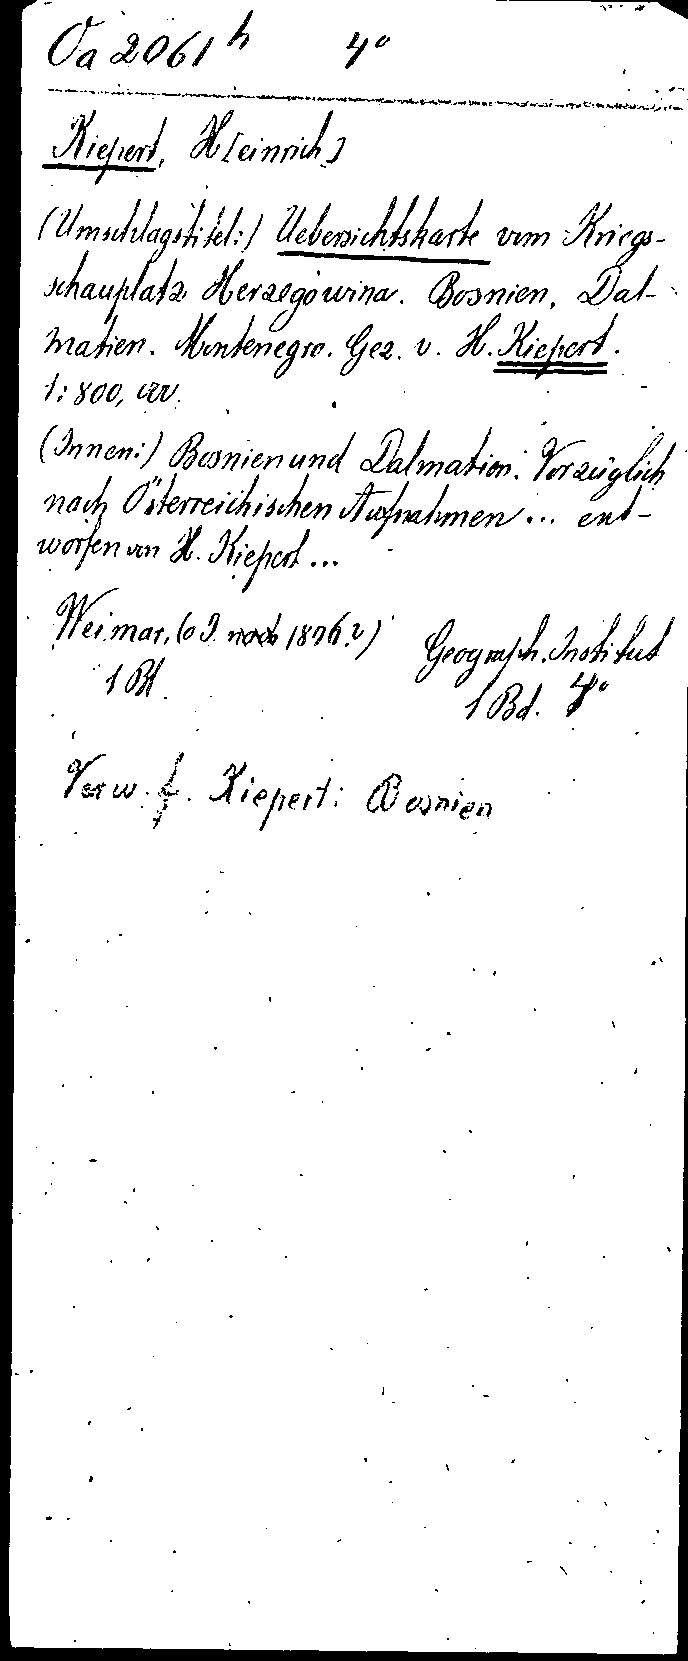 Oa 2061 h 4°
Kiepert, H[einrich]
(Umschlagstitel:) Uebersichtskarte vom Kriegs-
schauplatz Herzegowina. Bosnien, Dal-
matien. Montenegro. Gez. v. H. Kiepert.
1:800,000.
(Innen:) Bosnien und Dalmatien. Vorzüglich
nach Österreichischen Aufnahmen ... ent-
worfen von H. Kiepert ...
Weimar, (o J. noch 1876?) Geograph. Institut
1 Bl. 1 Bd. 4°
Verw. f. Kiepert: Bosnien